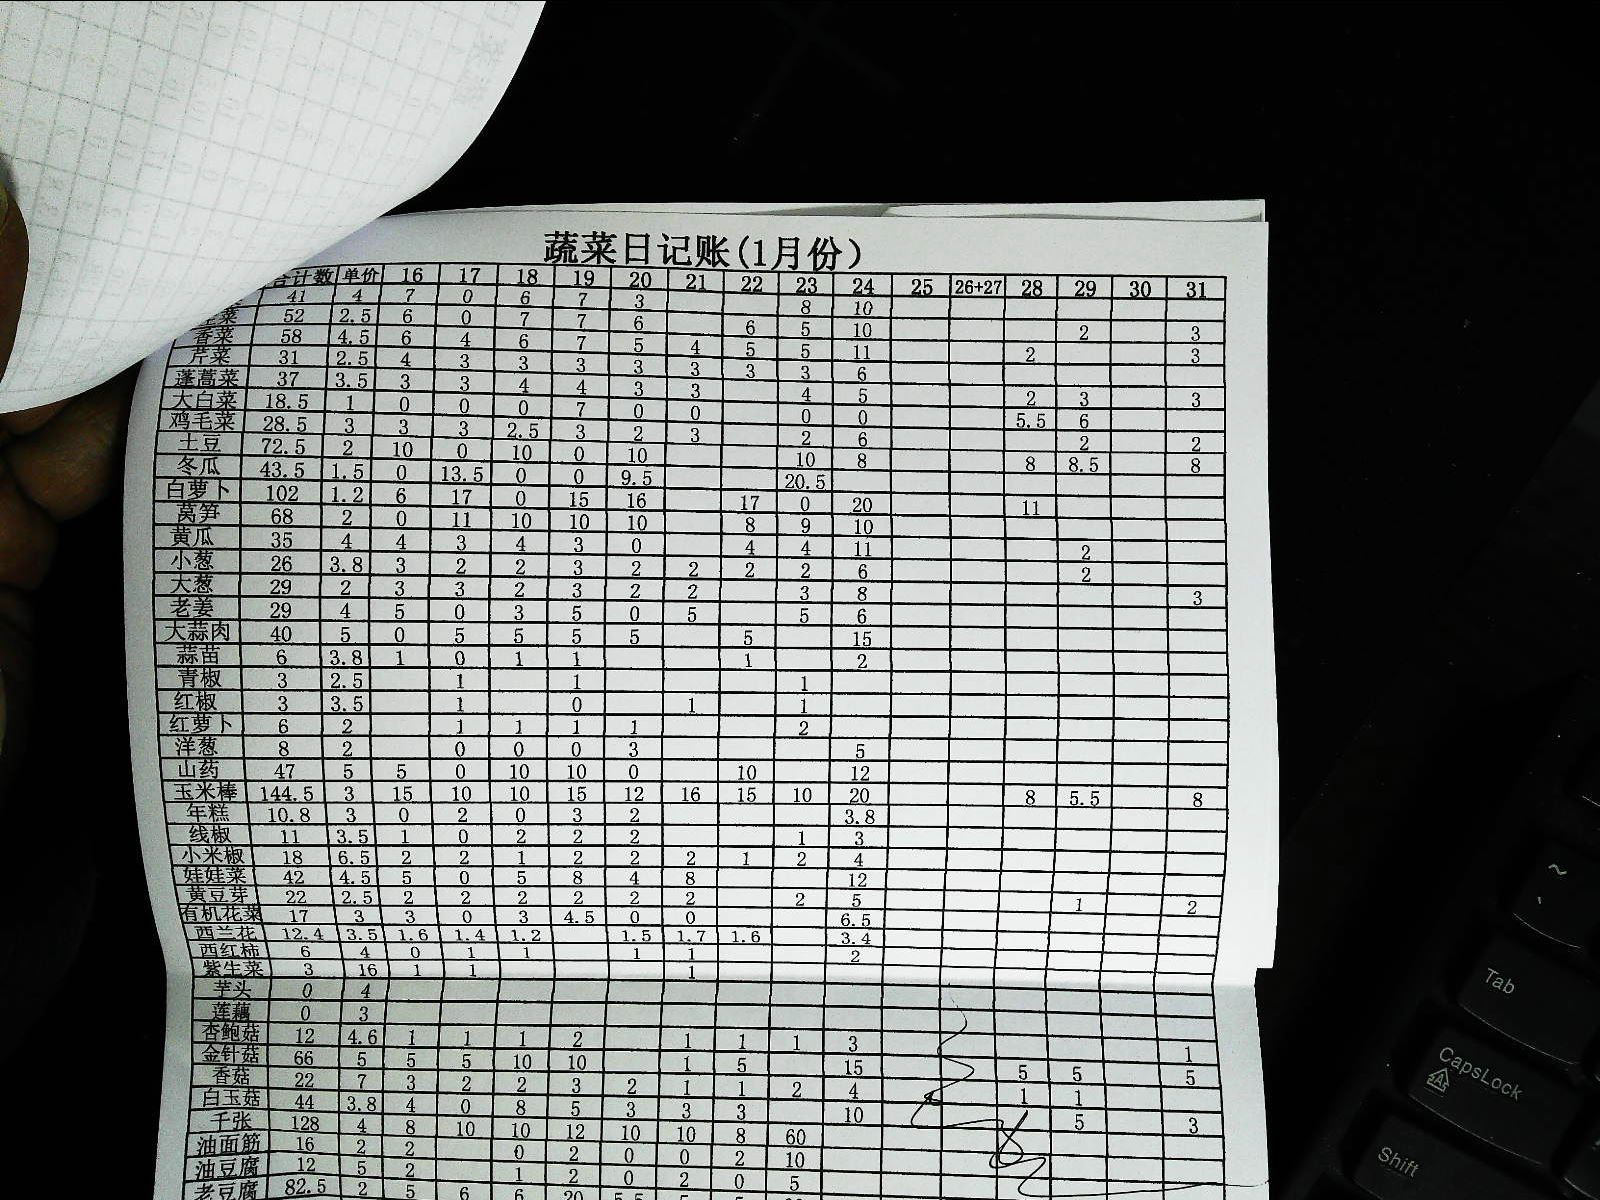 蔬菜日记账(1月份)
合计数 单价 16 17 18 19 20 21 22 23 24 25 26+27 28 29 30 31
41 4 7 0 6 7 3 8 10
菜 52 2.5 6 0 7 7 6 6 5 10 2 3
香菜 58 4.5 6 4 6 7 5 4 5 5 11 2 3
芹菜 31 2.5 4 3 3 3 3 3 3 3 6
蓬蒿菜 37 3.5 3 3 4 4 3 3 4 5 2 3 3
大白菜 18.5 1 0 0 0 7 0 0 0 0 5.5 6
鸡毛菜 28.5 3 3 3 2.5 3 2 3 2 6 2 2
土豆 72.5 2 10 0 10 0 10 10 8 8 8.5 8
冬瓜 43.5 1.5 0 13.5 0 0 9.5 20.5
白萝卜 102 1.2 6 17 0 15 16 17 0 20 11
莴笋 68 2 0 11 10 10 10 8 9 10
黄瓜 35 4 4 3 4 3 0 4 4 11 2
小葱 26 3.8 3 2 2 3 2 2 2 2 6 2
大葱 29 2 3 3 2 3 2 2 3 8 3
老姜 29 4 5 0 3 5 0 5 5 6
大蒜肉 40 5 0 5 5 5 5 5 15
蒜苗 6 3.8 1 0 1 1 1 2
青椒 3 2.5 1 1 1
红椒 3 3.5 1 0 1 1
红萝卜 6 2 1 1 1 1 2
洋葱 8 2 0 0 0 3 5
山药 47 5 5 0 10 10 0 10 12
玉米棒 144.5 3 15 10 10 15 12 16 15 10 20 8 5.5 8
年糕 10.8 3 0 2 0 3 2 3.8
线椒 11 3.5 1 0 2 2 2 1 3
小米椒 18 6.5 2 2 1 2 2 2 1 2 4
娃娃菜 42 4.5 5 0 5 8 4 8 12
黄豆芽 22 2.5 2 2 2 2 2 2 2 5 1 2
有机花菜 17 3 3 0 3 4.5 0 0 6.5
西兰花 12.4 3.5 1.6 1.4 1.2 1.5 1.7 1.6 3.4
西红柿 6 4 0 1 1 1 1 2
紫生菜 3 16 1 1 1
芋头 0 4
莲藕 0 3
杏鲍菇 12 4.6 1 1 1 2 1 1 1 3 1
金针菇 66 5 5 5 10 10 1 5 15 5 5 5
香菇 22 7 3 2 2 3 2 1 1 2 4 1 1
白玉菇 44 3.8 4 0 8 5 3 3 3 10 5 3
千张 128 4 8 10 10 12 10 10 8 60
油面筋 16 2 2 0 2 0 0 2 10
油豆腐 12 5 2 1 2 0 2 0 5
老豆腐 82.5 2 5 6 6 20
~
Tab
CapsLock
A
Shift